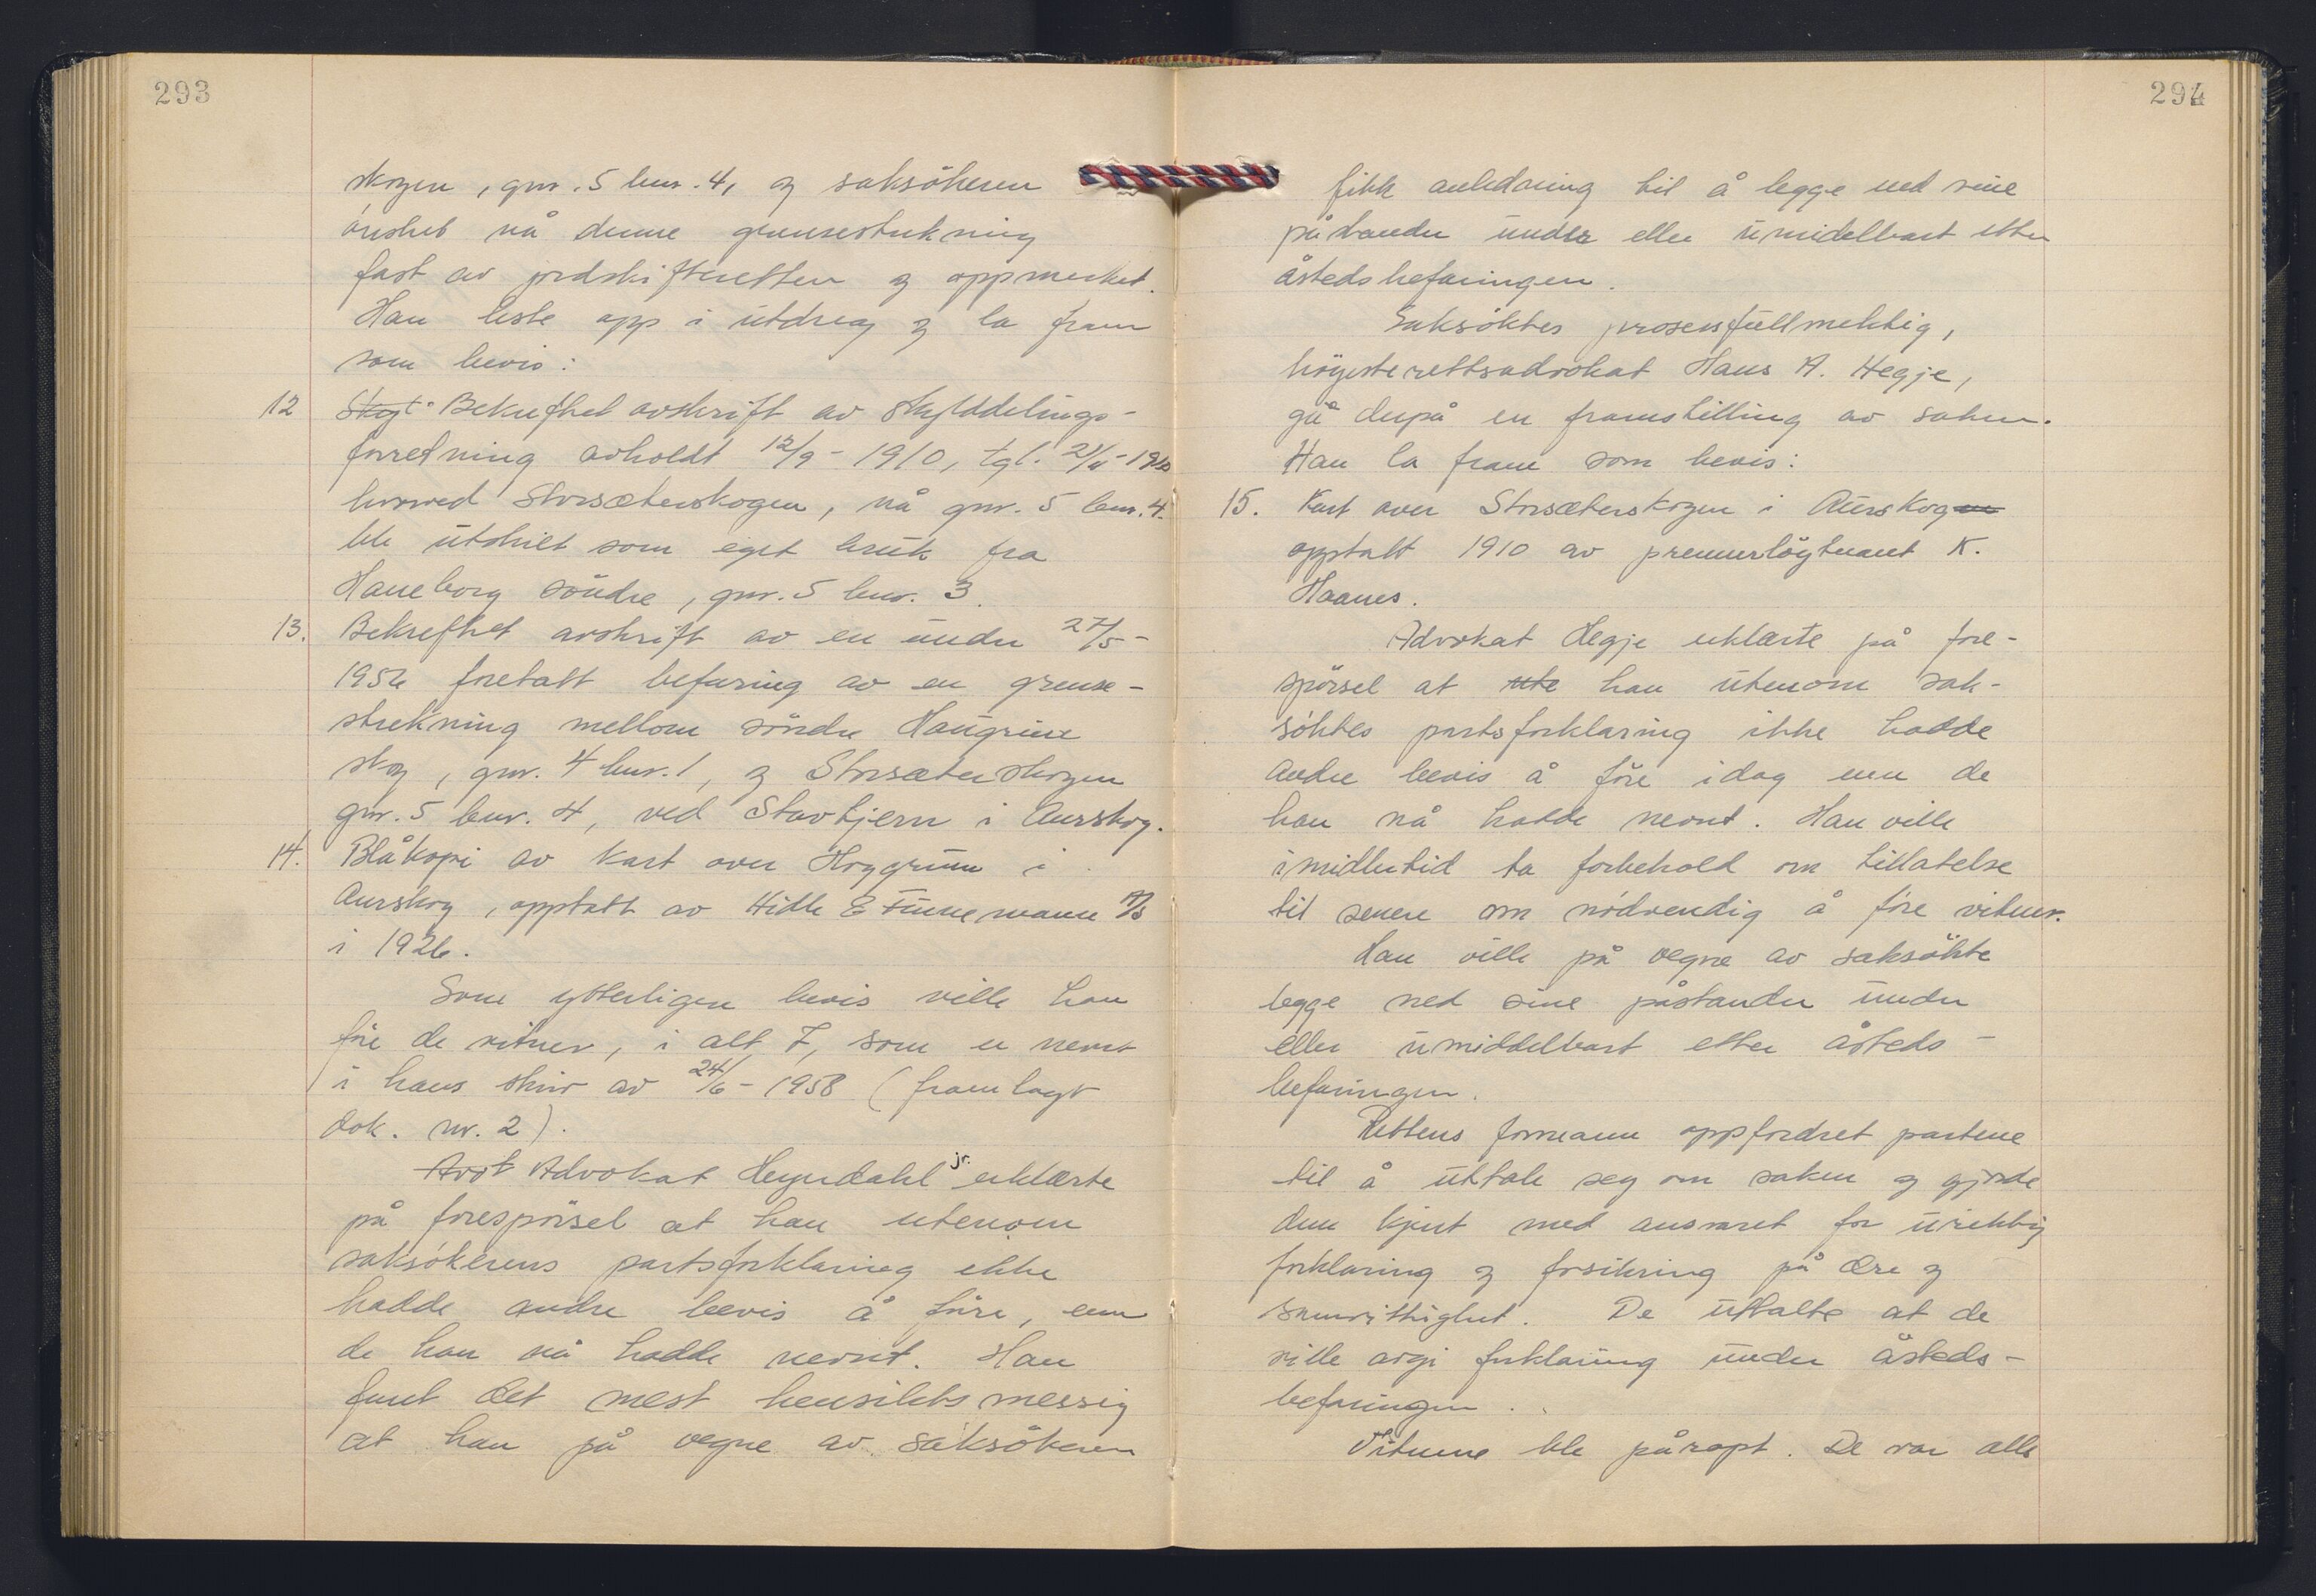 293
skogen, gnr. 5 bnr. 4, og saksökeren
önsket nå denne grensestrekning
fast av jordskifteretten og oppmerket.
Han leste opp i utdrag og la fram
som bevis:
12 Skyl. Bekreftet avskrift av skylddelings-
forretning avholdt 12/9 - 1910, tgl. 21/11 - 1910
hvorved Storsæterskogen, nå gnr. 5 bnr. 4.
ble utskilt som eget bruk fra
Haneborg söndre, gnr. 5 bnr. 3.
13. Bekreftet avskrift av en under 27/5 -
1952 foretatt befaring av en grense-
strekning mellom söndre Haugrim
skog, gnr. 4 bnr. 1, og Storsæterskogen
gnr. 5 bnr. 4, ved Stavtjern i Aurskog.
14. Blåkopi av kart over Hoggrim i
Aurskog, opptatt av Hidle & Finnemann A/S
i 1926.
Som ytterligere bevis ville han
före de vitner, i alt 7, som er nevnt
i hans skriv av 24/6 - 1958 (framlagt
dok. nr. 2).
Avot Advokat Heyerdahl jr. erklærte
på forespörsel at han utenom
saksökerens partsforklaring ikke
hadde andre bevis å före, enn
de han nå hadde nevnt. Han
fant det mest hensiktsmessig
at han på vegne av saksökeren
294
fikk anledning til å legge ned sine
påstander under eller umidelbart etter
åstedsbefaringen.
Saksöktes prosessfullmektig,
höyesterettsadvokat Hans A. Hegje,
ga derpå en framstilling av saken.
Han la fram som bevis:
15. Kart over Storsæterskogen i Aurskogen
opptatt 1910 av premierlöytnant K.
Haanes.
Advokat Hegje erklærte på fore-
spörsel at ute han utenom sak-
söktes partsforklaring ikke hadde
andre bevis å före idag enn de
han nå hadde nevnt. Han ville
imidlertid ta forbehold om tillatelse
til senere om nödvendig å före vitner.
Han ville på vegne av saksökte
legge ned sine påstander under
eller umiddelbart etter åsteds-
befaringen.
Rettens formann oppfordret partene
til å uttale seg om saken og gjorde
dem kjent med ansvaret for uriktig
forklaring og forsikring på ære og
samvittighet. De uttalte at de
ville avgi forklaring under åsteds-
befaringen.
Vitnene ble påropt. De var alle